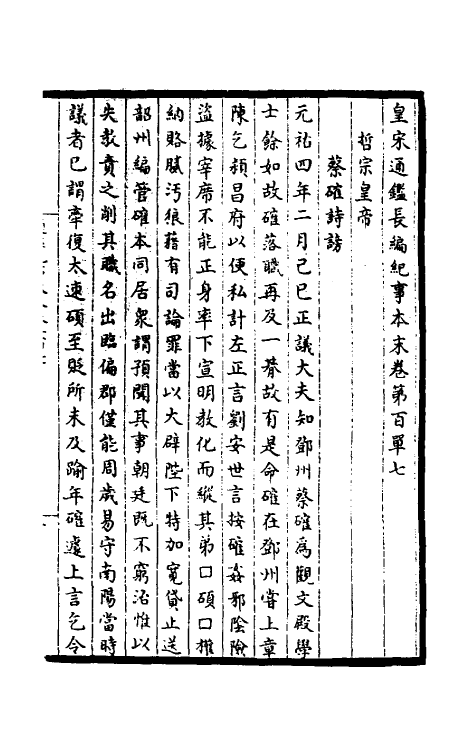 皇宋通鑑長編紀事本末卷第百單七
哲宗皇帝
蔡確詩謗
元祐四年二月己巳正議大夫知鄧州蔡確爲觀文殿學
士餘如故確落職再及一朞故有是命確在鄧州嘗上章
陳乞潁昌府以便私計左正言劉安世言按確姦邪陰險
盜據宰席不能正身率下宣明敎化而縱其弟口碩口權
納賂贓汚狼藉有司論罪當以大辟陛下特加寬貸止送
韶州編管確本同居衆謂預聞其事朝廷既不窮治惟以
失敎責之削其職名出臨偏郡僅能周歲易守南陽當時
議者已謂牽復太速碩至貶所未及踰年確遽上言乞令